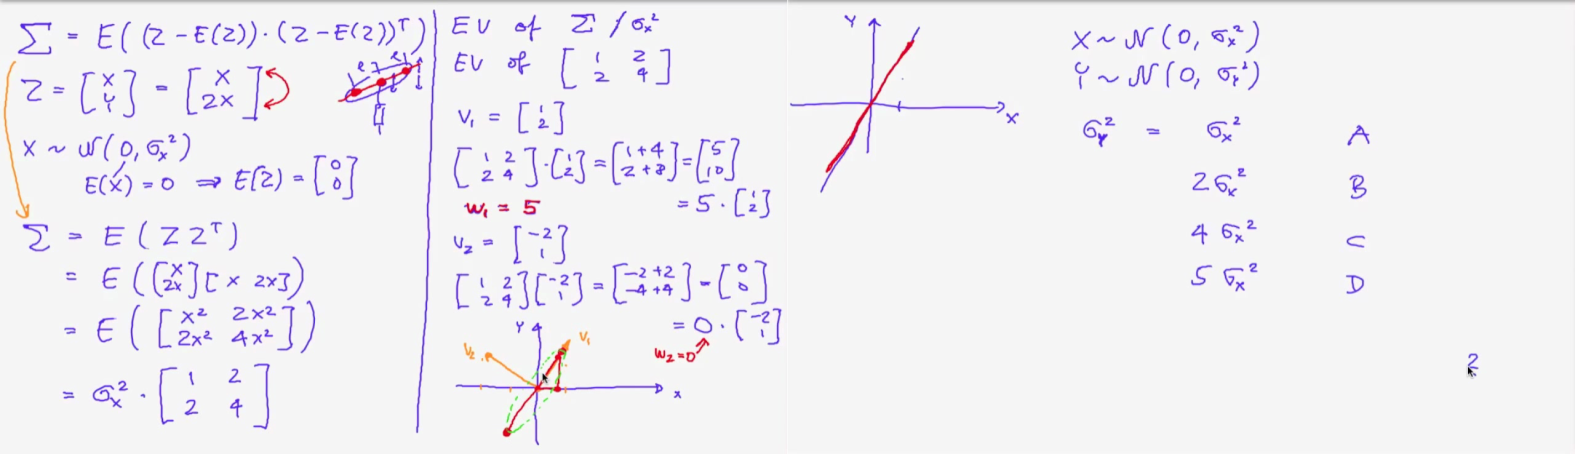 Σ = E((Z - E(Z))·(Z - E(Z))ᵀ)
Z = [X Y] = [X 2X]
X ~ N(0, σₓ²)
E(X) = 0 ⇒ E(Z) = [0 0]
Σ = E(ZZᵀ)
= E([X 2X][X 2X])
= E([X² 2X² 2X² 4X²])
= σₓ² · [1 2 2 4]
EV of Σ / σₓ²
EV of [1 2 2 4]
V₁ = [1 2]
[1 2 2 4]·[1 2] = [1+4 2+8] = [5 10]
W₁ = 5 = 5·[1 2]
V₂ = [-2 1]
[1 2 2 4][-2 1] = [-2+2 -4+4] = [0 0]
= 0·[-2 1]
W₂=0
Y
V₂
V₁
X
Y
X
X ~ N(0, σₓ²)
Y ~ N(0, σᵧ²)
σᵧ² = σₓ² A
2σₓ² B
4 σₓ² C
5 σₓ² D
2